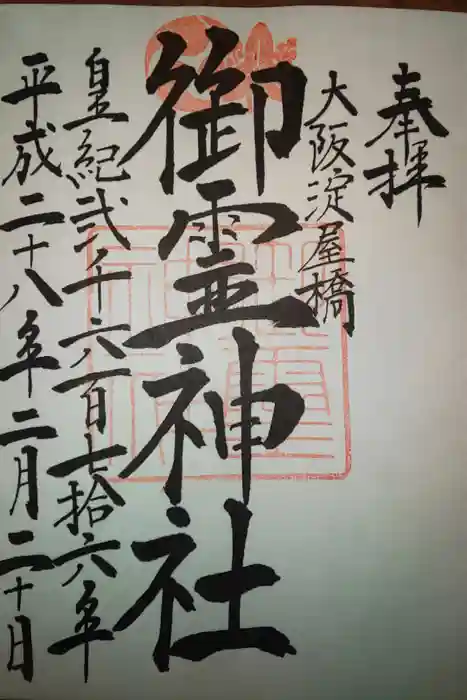 奉拝
大阪淀屋橋
御霊神社
皇紀弐千六百七拾六年
平成二十八年二月二十日